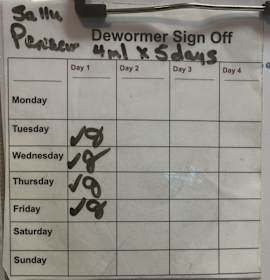 Sally
Panacur
Dewormer Sign Off
4ml x 5days
Day 1 Day 2 Day 3 Day 4
Monday
Tuesday ✓
Wednesday ✓
Thursday ✓
Friday ✓
Saturday
Sunday